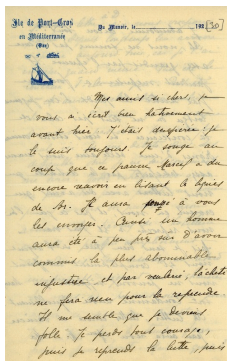 Ile de Port-Cros
en Méditerranée
(Var)
Du Manoir, le 192 [30]
Mes amis si chers, je
vous ai écrit bien hativement
avant hier. J'étais desesperée: je
le suis toujours. Je songe au
coup que ce pauvre Marcel a du
encore recevoir en lisant les lignes
de Il aura songé à vous
les envoyer. Ainsi un homme
aura été à peu près sûr d'avoir
commis la plus abominable
injustice et par vanterie, lâcheté
ne fera rien pour la reprendre
Il me semble que je deviens
folle. Je perds tout courage,
puis je reprends la lutte, puis